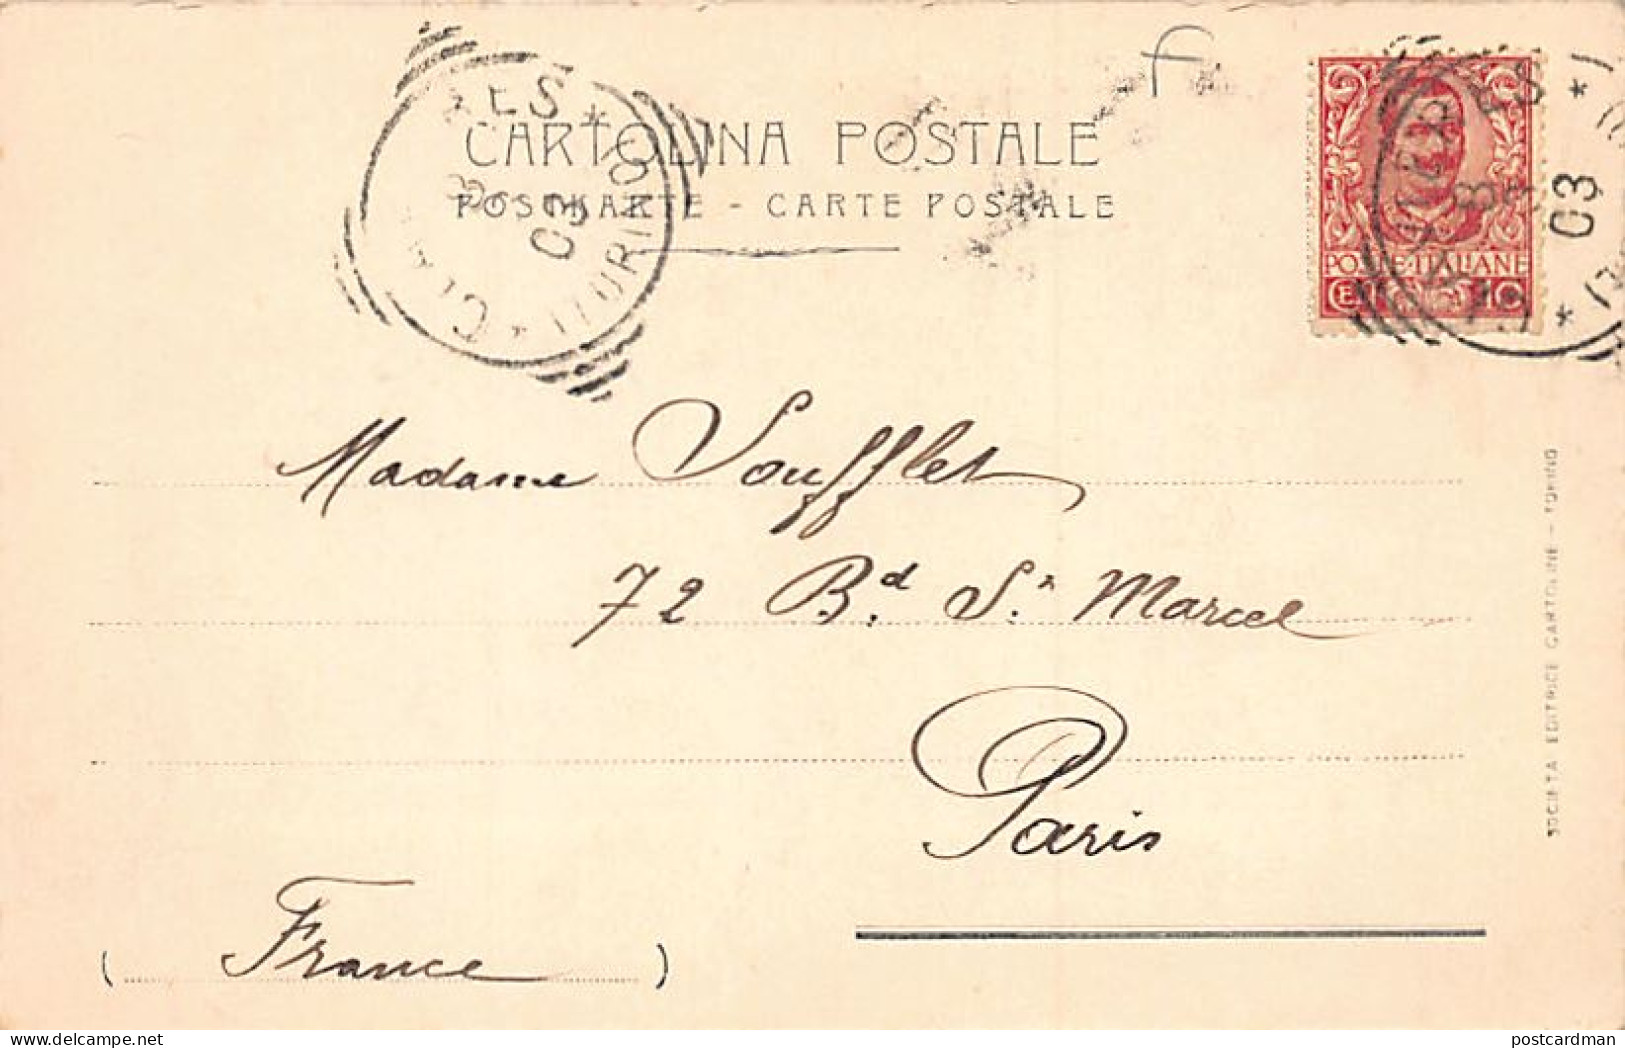 CARTOLINA POSTALE
POSTKARTE - CARTE POSTALE
03
(TORINO)
POSTE ITALIANE
CENT 10
03
Madame Soufflet
72 Bd. St. Marcel
Paris
(France)
SOCIETA EDITRICE CARTOLINE - TORINO
postcardman